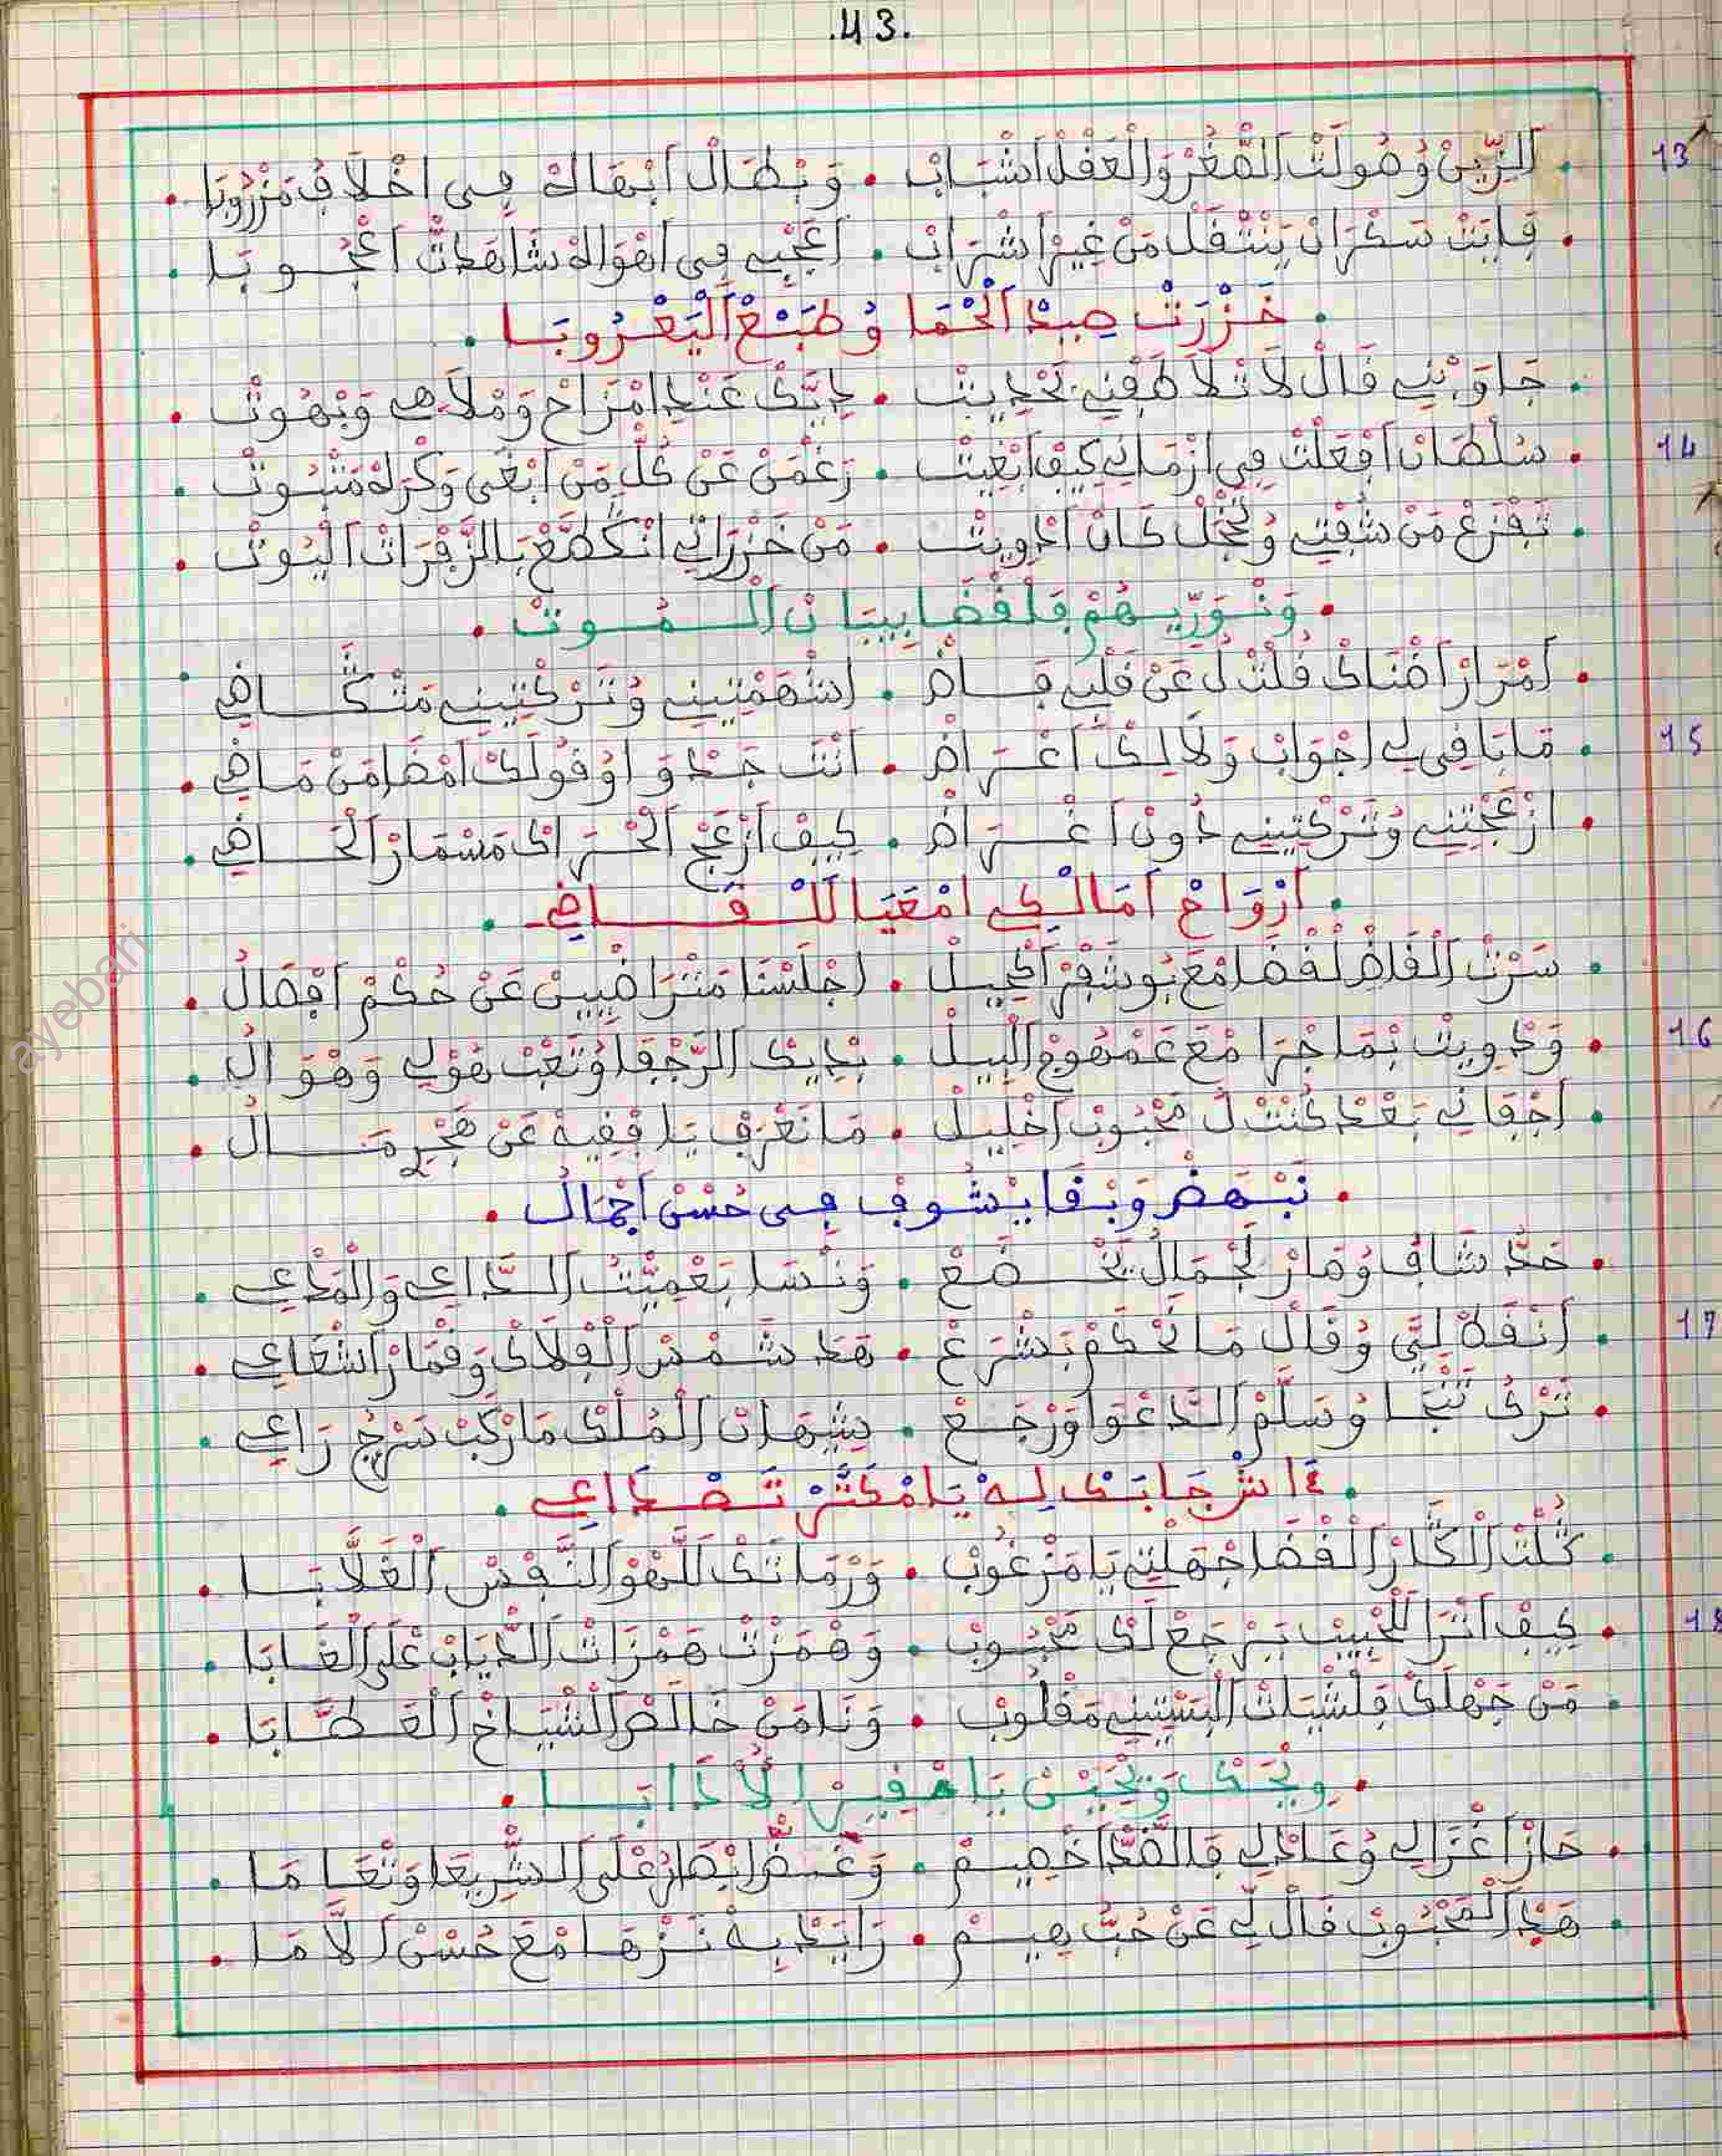 .43.
13 . الزين وصولت الصغر والعقل اشباب . وبطال ابهاك في اخلاڢ مزروبا .
. فايت سكران ينتقل من غير اشراب . اعجبي في اهواه شاهدت اعجوبا .
. خزرت صيد الحما وطبع اليعروبا .
. جاوبني قال لا تلاطفني بحديث . يديك عند امزاح وملاهي وبهوت .
14 . سلطان افعلت في ازماني كيف ابغيت . رغمن عن كل من ابغى وكره مثبوت .
. تفزع من شفتي وتخجل كان ادويت . من خزراتي انكطع بالزفرات اليوت .
. ونوريهم فلقضا بيبان الموت .
. امرار اضناك قلت ل عن قلب قاض . اشهمتيني وتركتيني متكاضي .
15 . ما باقي لي اجواب ولا ليك اغراض . انت جد و اوقولك امضا من ماضي .
. ازعجتني وتركتيني دون اغراض . كيف ازعج الحراك مسمار الحاضي .
. ارواح امالكي امعيا للقاضي .
. سرت القاض لقضا مع بوشفر اكحيل . اجلسنا متراضيين عن حكم افصال .
16 . ودويت بما جرا مع غمهوج البيل . بديك الرجفا وتعب هولي وهوال .
. اجفاني بعد كنت ل محبوب اخليل . ما نعرف يا فقيه عن هجر مال .
. نبهض وبقا يشوف في حسن اجمال .
. حد شاف وصار لجمال يخضع . ونسا بعميت الداعي والمدعي .
17 . انقه لي وقال ما نحكم بشرع . هد شمس الفلاك وقمار اشعاعي .
. ترك تنجا وسلم الدعوا ورجع . شهدان الملك ما ركب سرج راعي .
. اش جابك ليه يا مكثر تصداعي .
. كلت الكدار القضا جهلتي يا مزغوب . ورماتك للهو النفس الغلابا .
18 . كيف اترا للحبيب يرجع لك محبوب . وهمزت همزات الدياب على الغابا .
. من جهلك فلشيات البستيني مقلوب . ونا من خالص الشياخ القطابا .
. ويحك ويحين يا حقير الادابا .
. حاز اغزالي وعادلي قالضد اخصيم . وغض ابصار على الشريعا وتعاما .
. هد المحبوب قال لي عن حب هيم . زايد به نزها مع حسن الاما .
ayebari